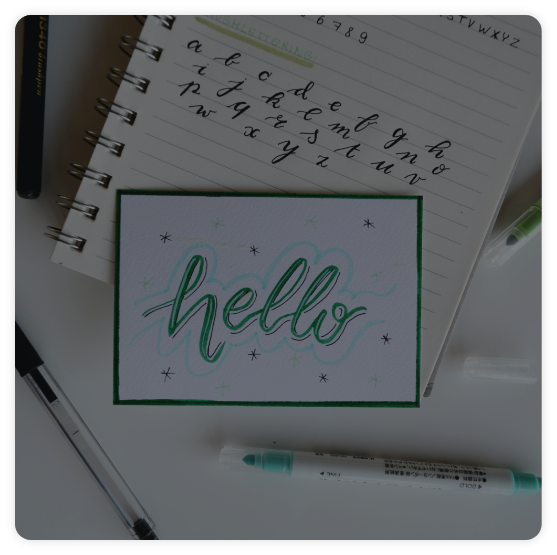 6 7 8 9
STVWXYZ
a b c d e f g h
i j k l m n o
p q r s t u v
w x y z
hello
BOLD